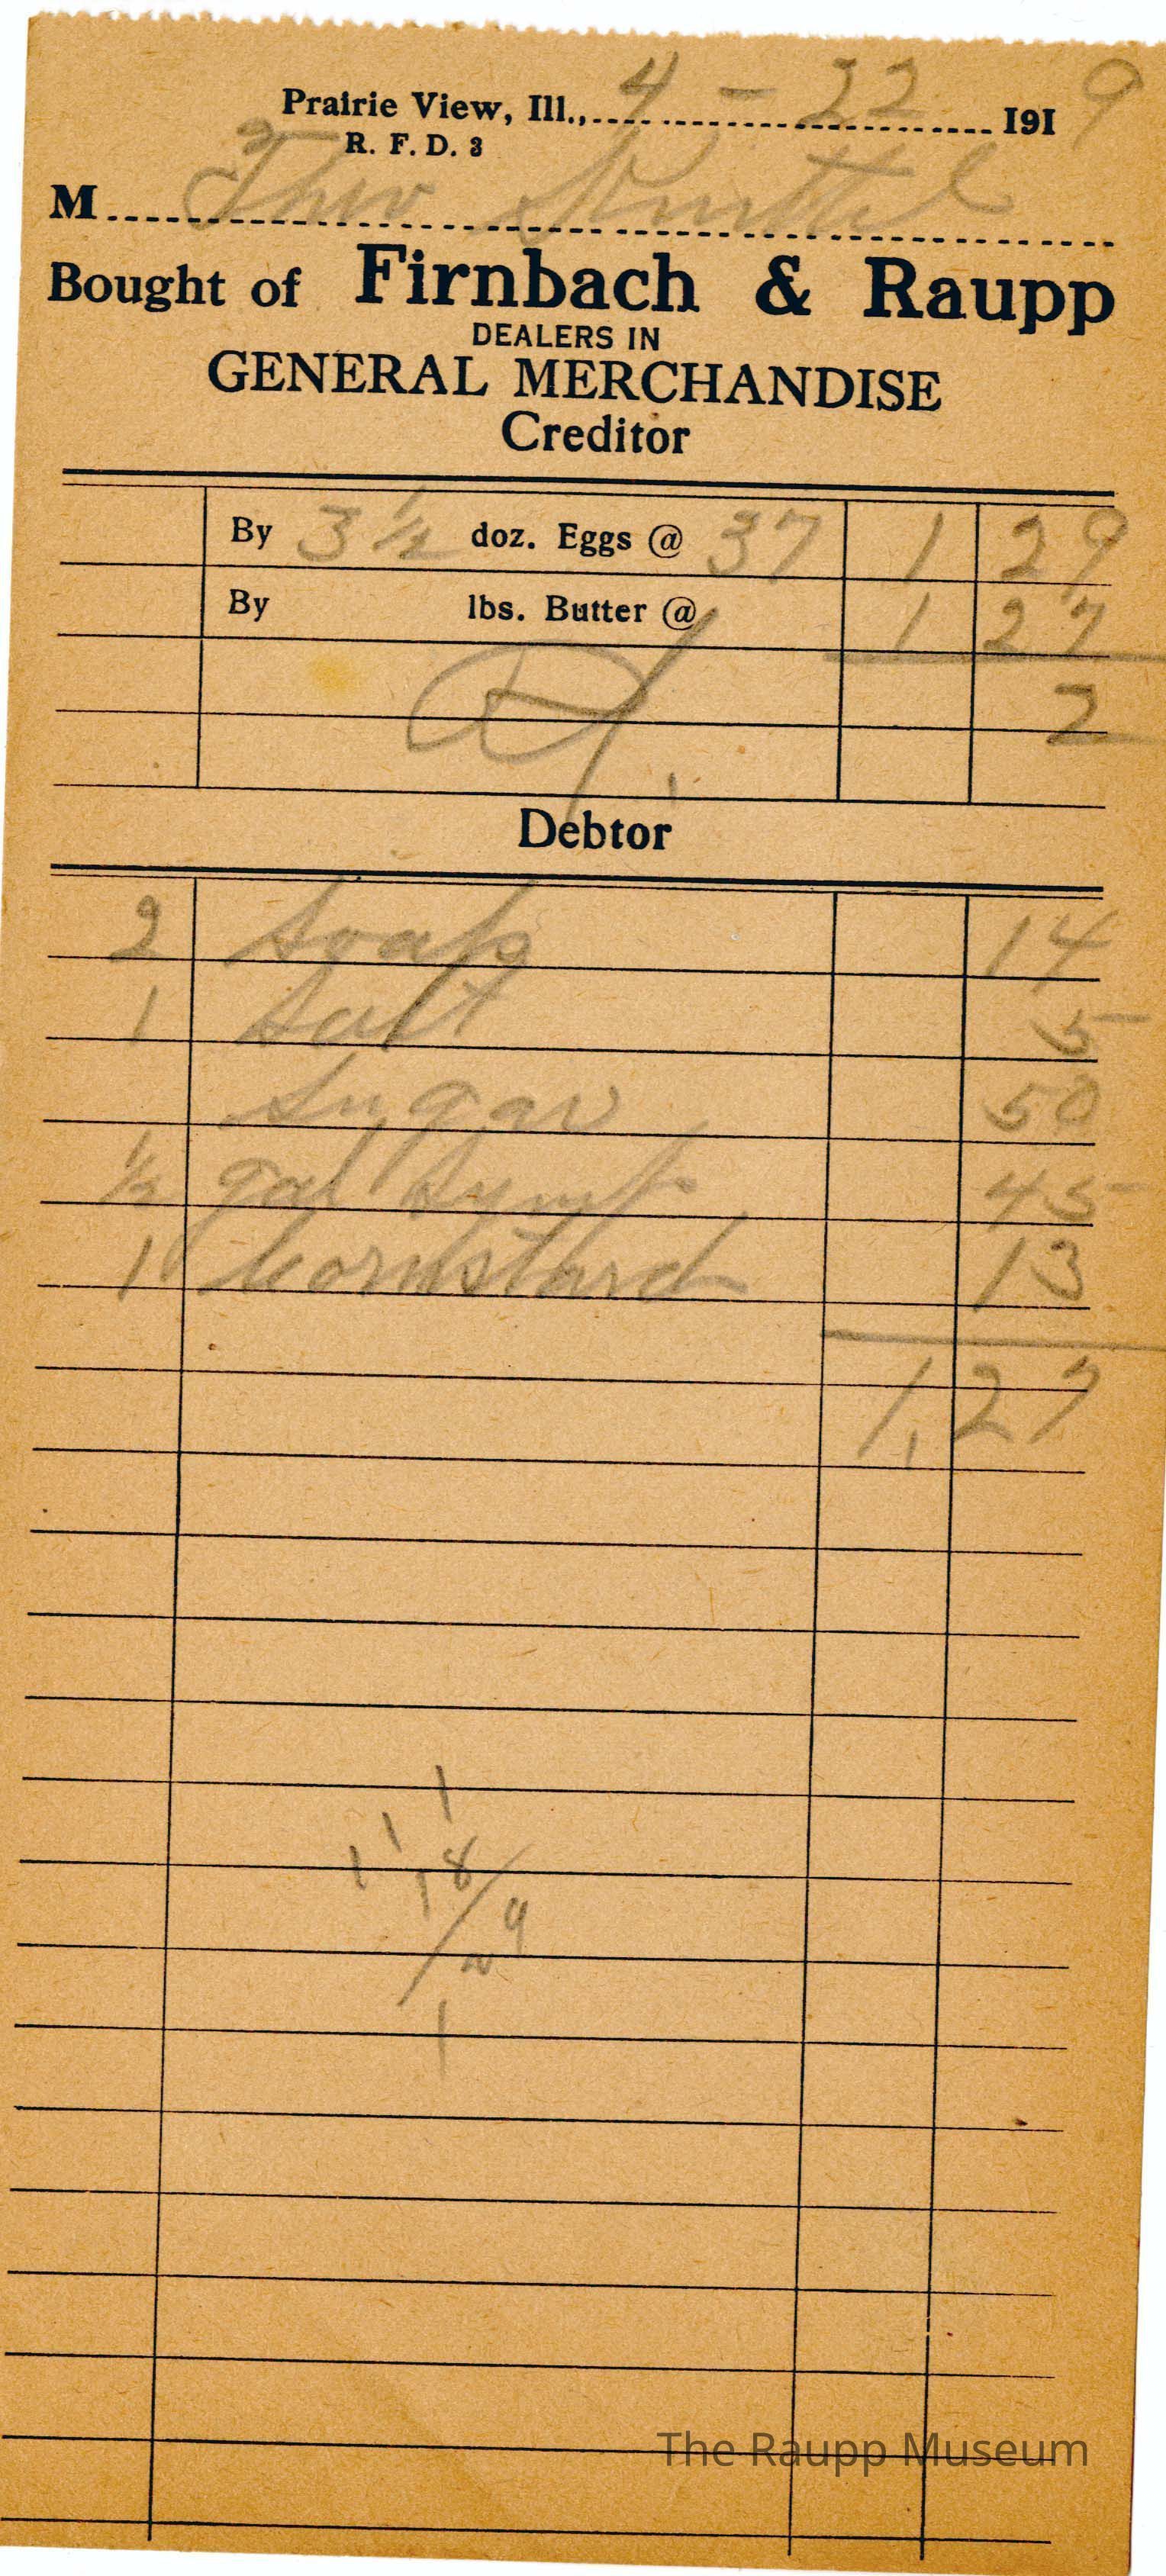 Prairie View, Ill., 4 - 22 1919
R. F. D. 3
M Theo
Bought of Firnbach & Raupp
DEALERS IN
GENERAL MERCHANDISE
Creditor
By 3 ½ doz. Eggs @ 37 1 29
By lbs. Butter @ 1 27
2
Debtor
2 Soap 14
1 Salt 5
Sugar 50
½ gal Syrup 45
1 Cornstarch 13
1,27
The Raupp Museum